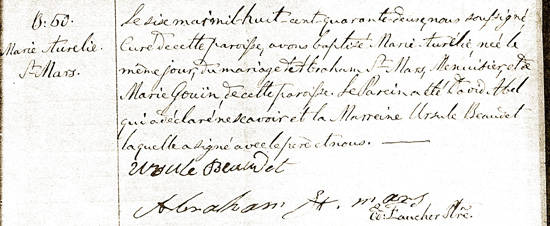 B. 60.
Marie Aurélie
St. Mars.
Le six mai mil huit-cent-quarante-deux, nous soussigné
Curé de cette paroisse, avons baptisé Marie Aurélie née le
même jour, du mariage d'Abraham St. Mars, Menuisier, et de
Marie Gouin, de cette paroisse. Le Parein a été David Abel
qui a déclaré ne savoir et la Marreine Ursule Beaudet
laquelle a signé avec le pere et nous.
Ursule Beaudet
Abraham St. mars
Ed: Faucher Ptre.